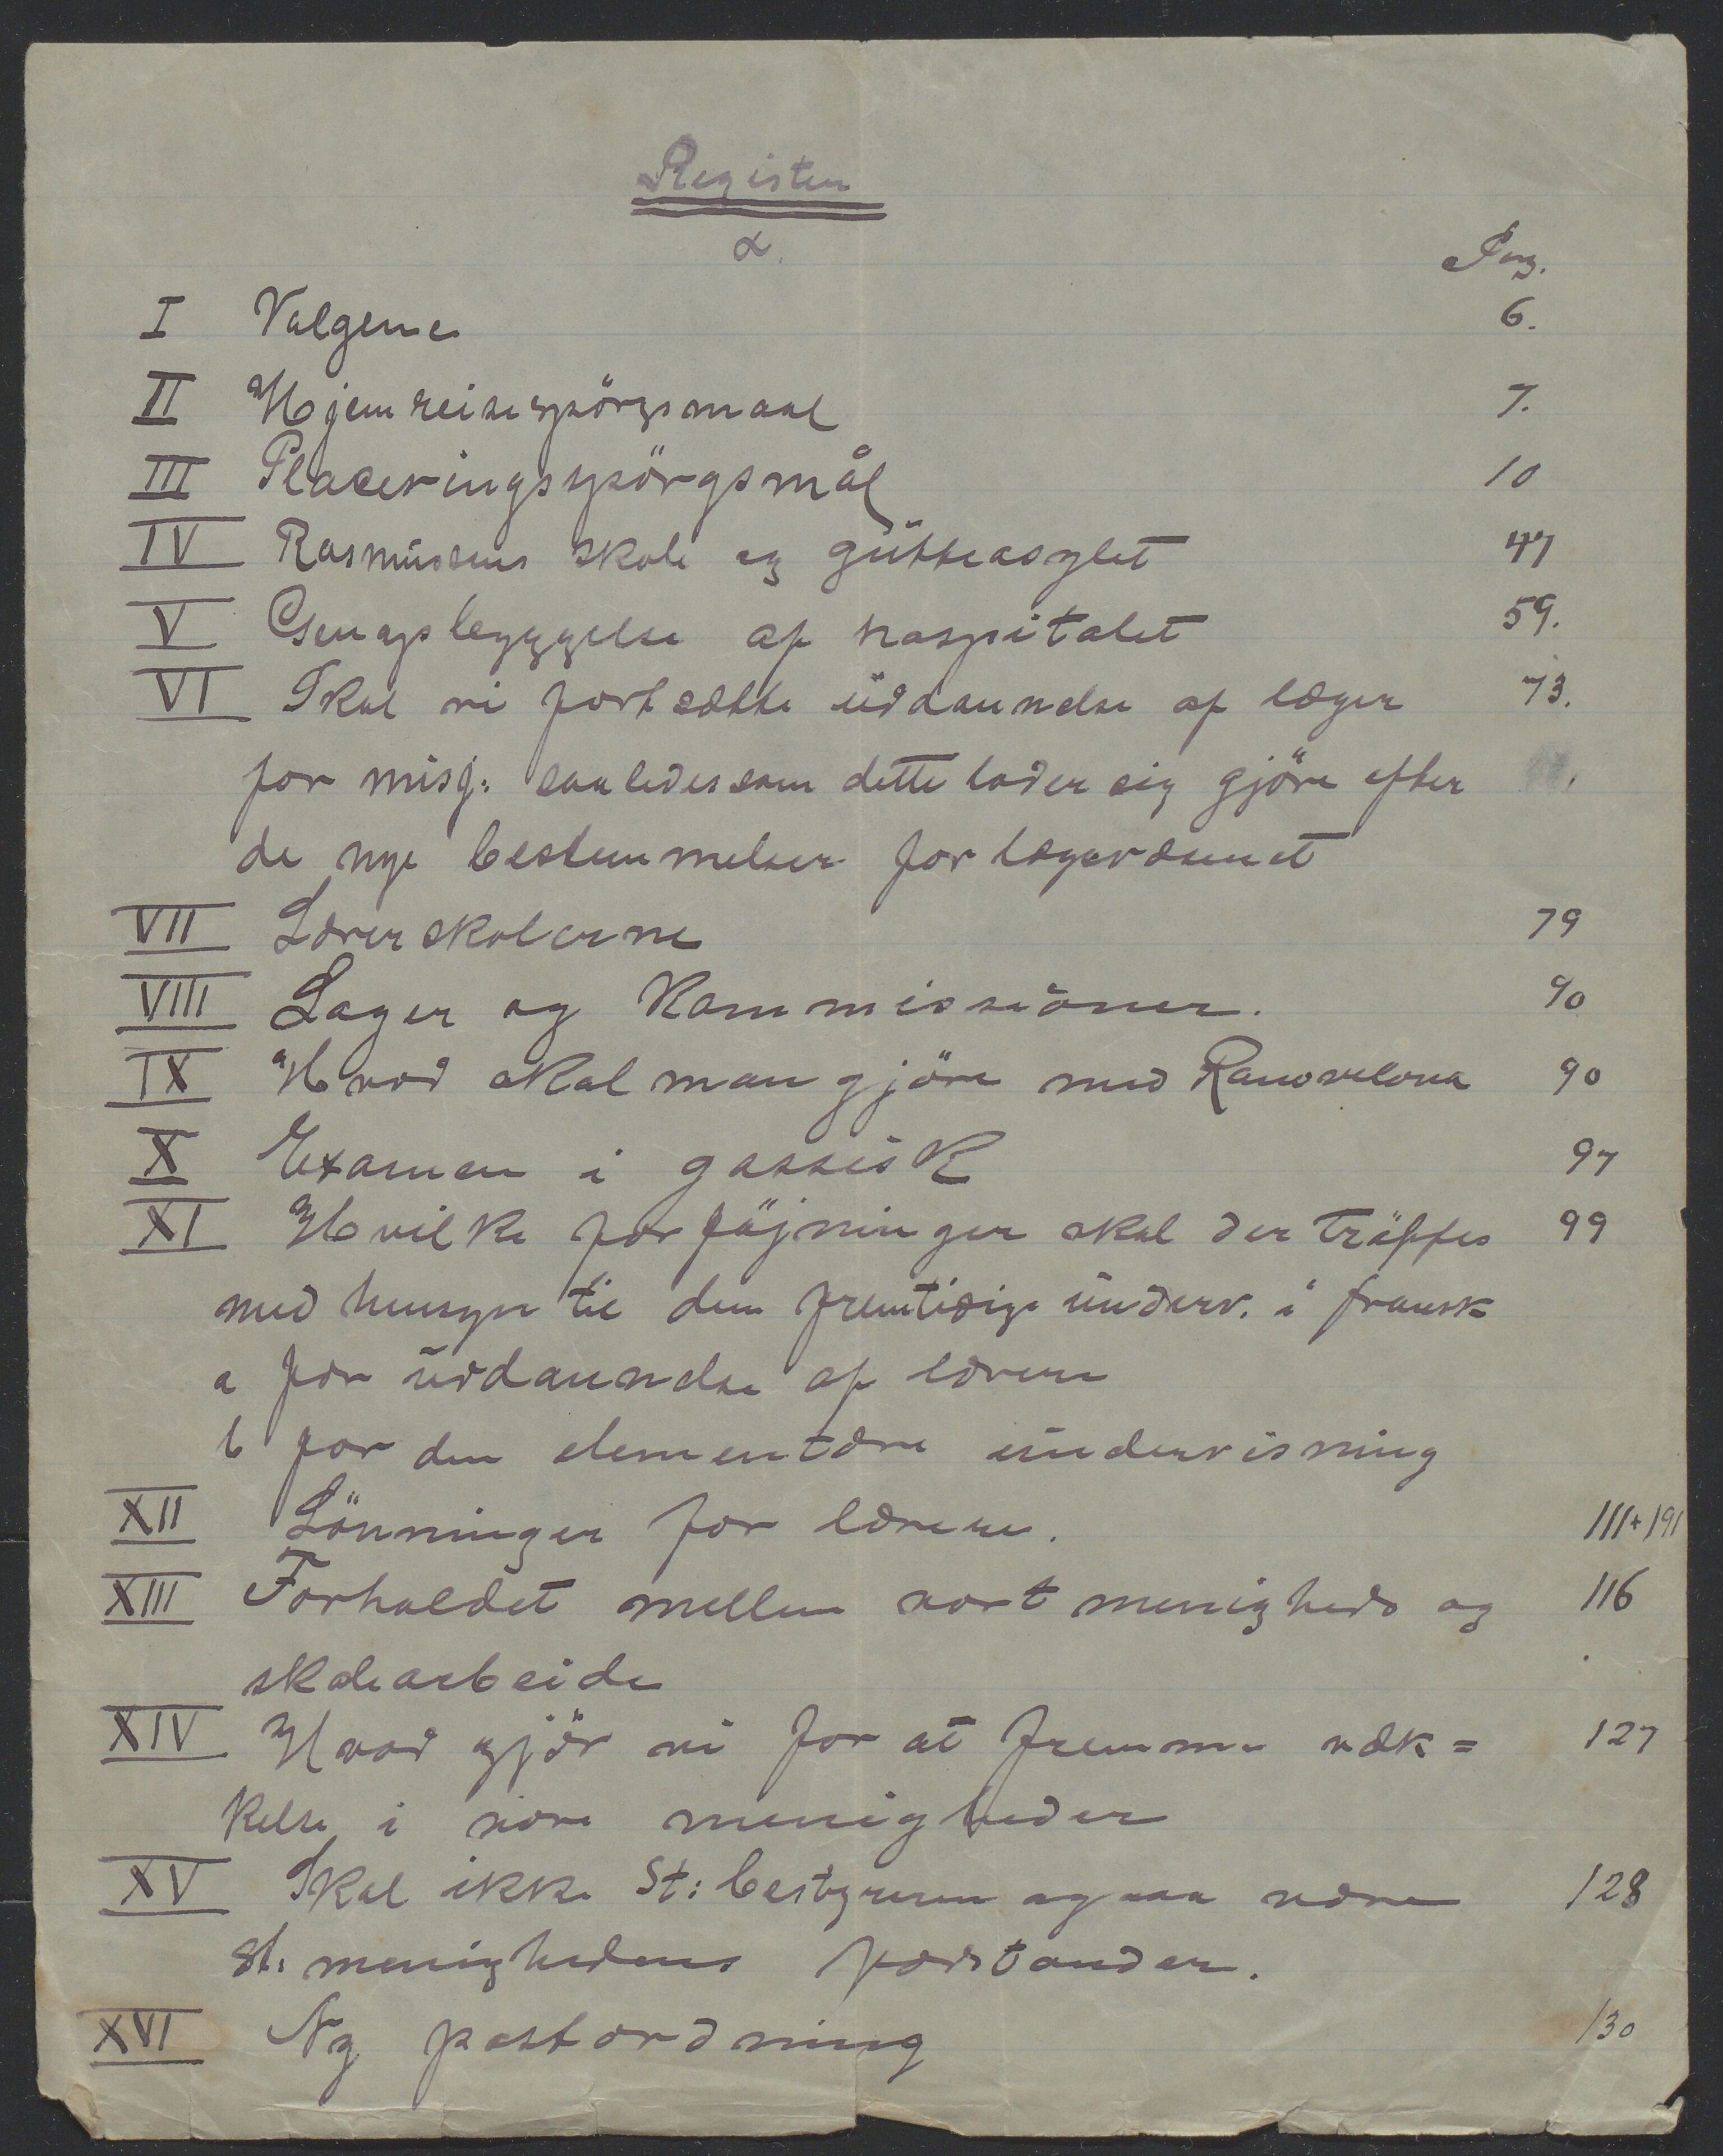 Register
α.
Pag.
I Valgene 6.
II Hjemreisespörgsmaal 7.
III Placeringsspörgsmål 10
IV Rasmussens skole og gutteasylet 47
V Gjenopbyggelse af hospitalet 59.
VI Skal vi fortsætte uddannelse af læger 73.
for misj: saaledes som dette lader sig gjöre efter
de nye bestemmelser for lægevæsenet
VII Lærerskolerne 79
VIII Lager og kommissioner. 90
IX Hvad skal man gjöre med Ranovelona 90
X Examen i gassisk 97
XI Hvilke forföjninger skal der träffes 99
med hensyn til den fremtidige underv. i fransk
a for uddannelse af lærere
b for den elementære undervisning
XII Lönninger for lærere. 111+191
XIII Forholdet mellem vort menigheds og 116
skolearbeide
XIV Hvad gjör vi for at fremme væk= 127
kelse i vore menigheder
XV Skal ikke St: bestyreren ogsaa være 128
St. menighedens forstander.
XVI Ny postordning 130